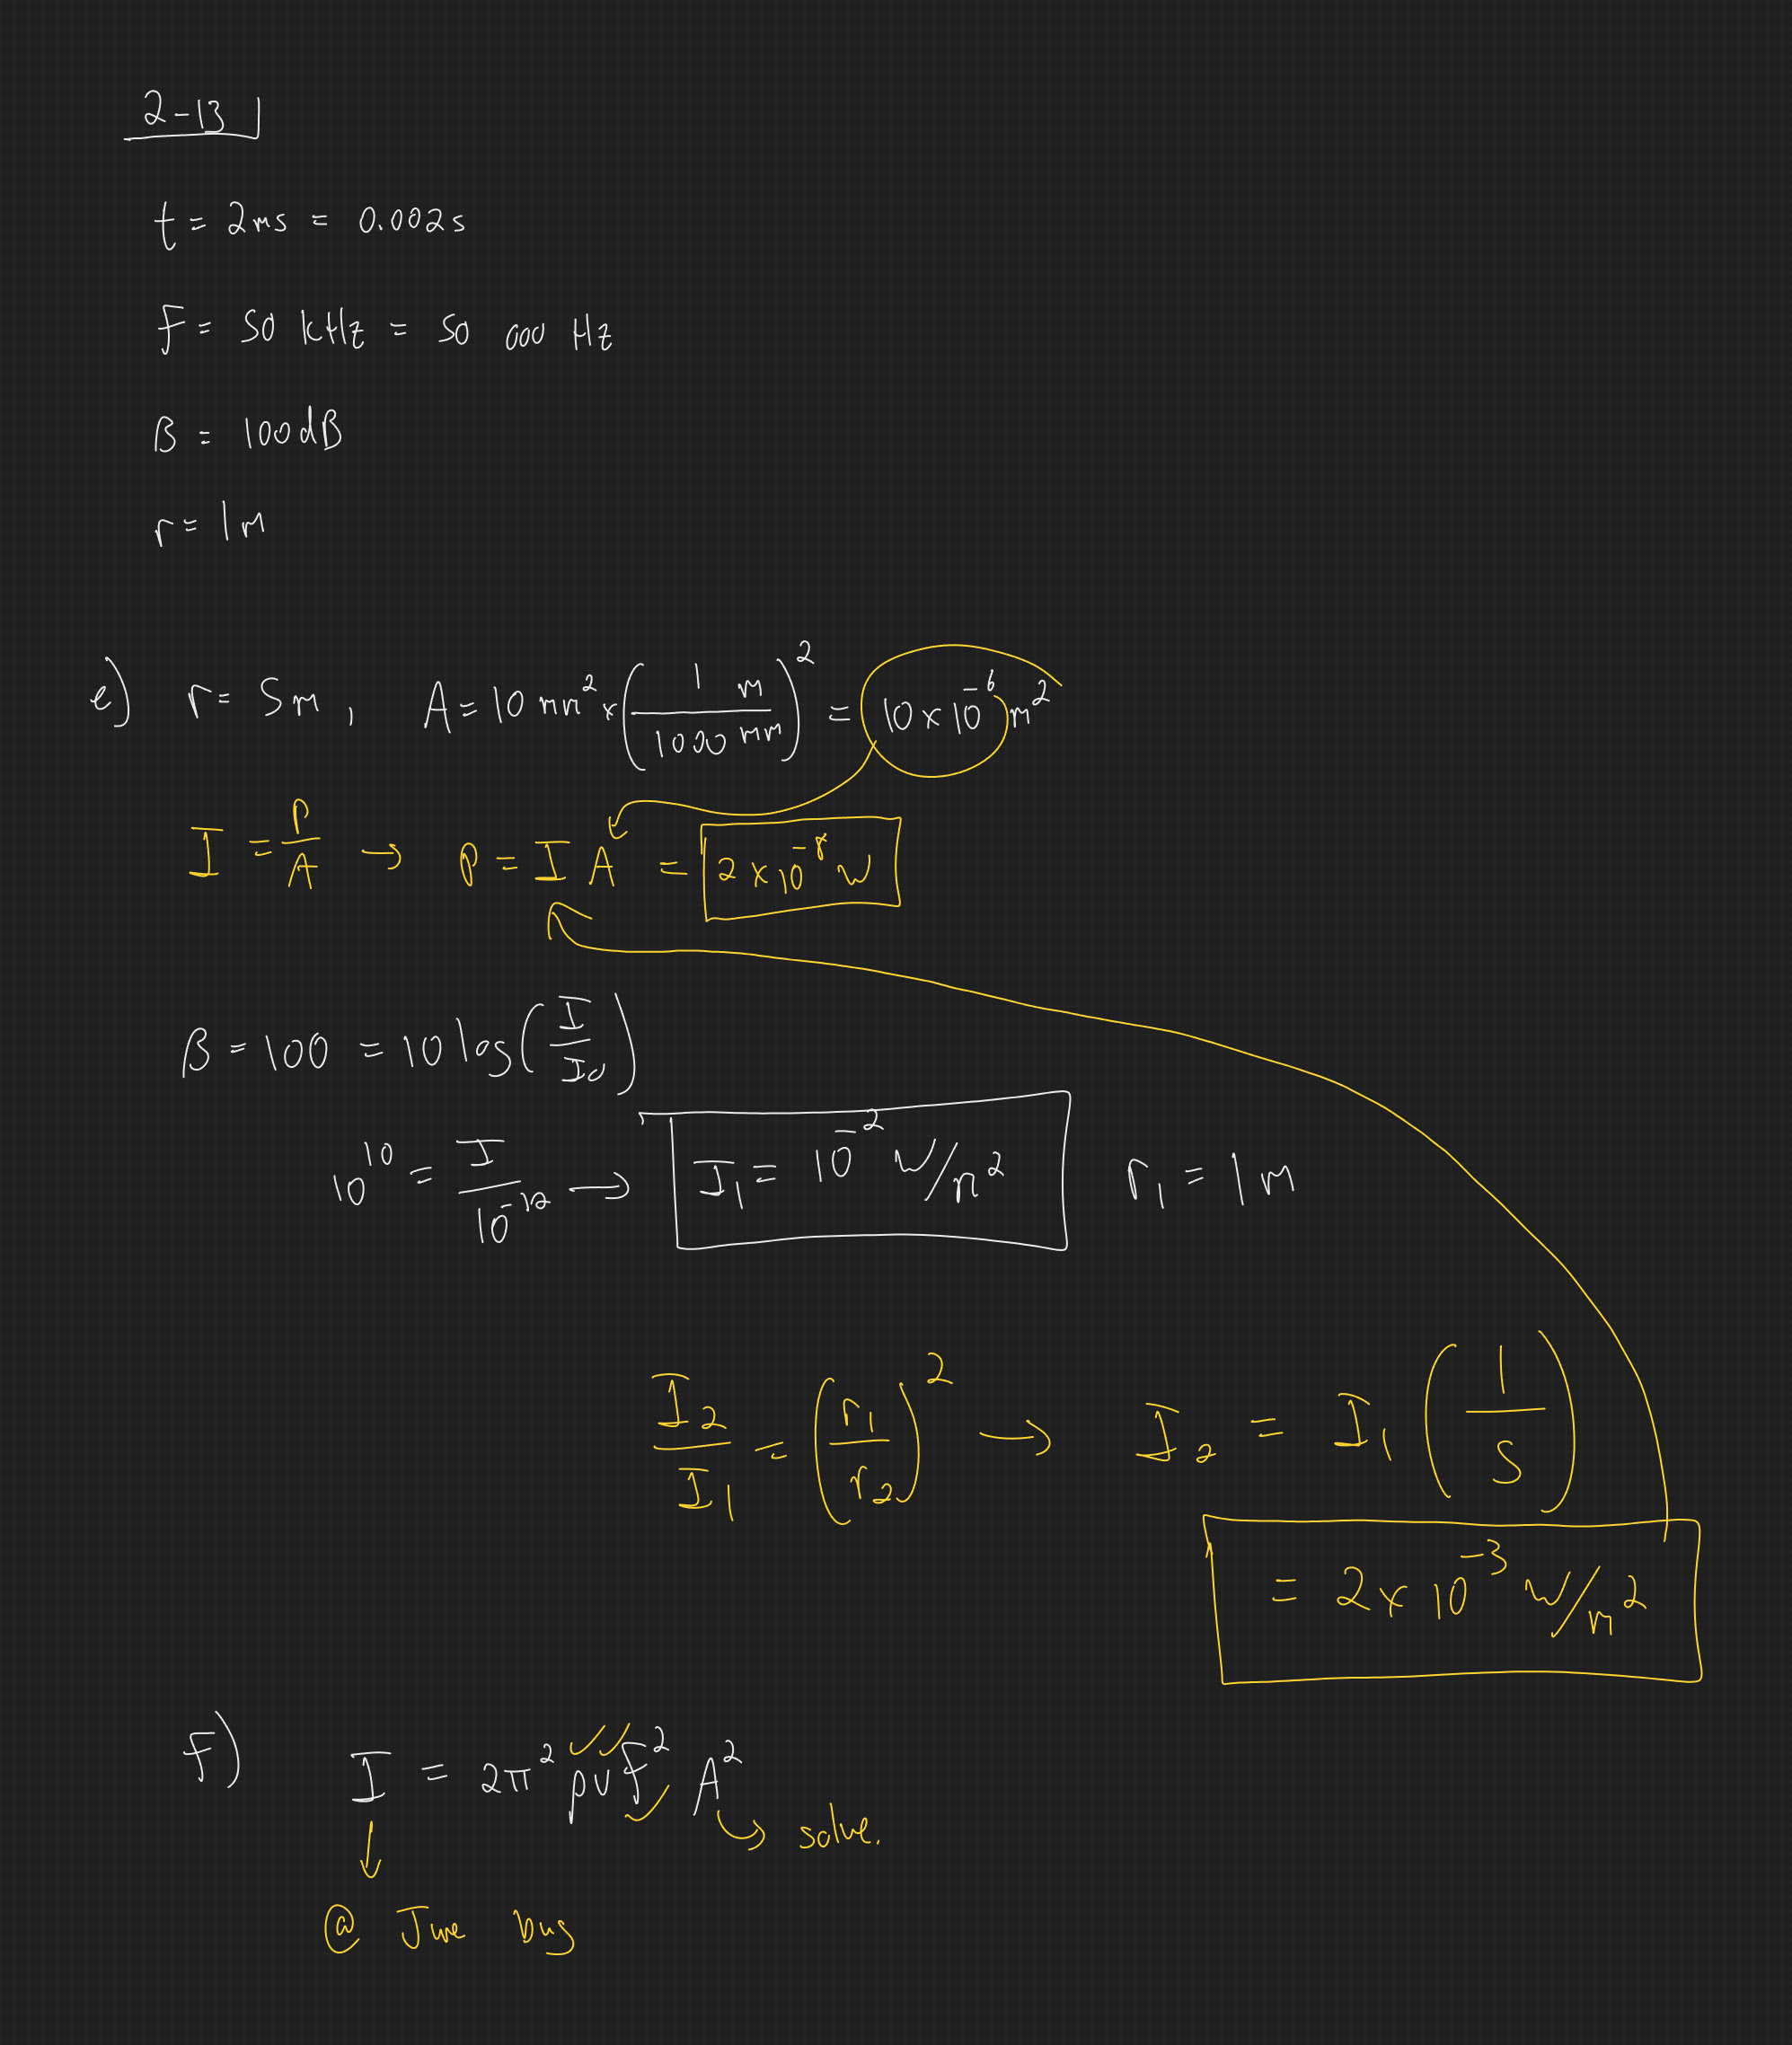 2-13
t = 2ms = 0.002s
f = 50 kHz = 50 000 Hz
β = 100dB
r = 1m
e) r = 5m, A = 10 mm² × (1 m / 1000 mm)² = 10 × 10⁻⁶ m²
I = P/A → P = I A = 2 × 10⁻⁸ W
β = 100 = 10 log(I/I₀)
10¹⁰ = I/10⁻¹² → I₁ = 10⁻² W/m² r₁ = 1m
I₂/I₁ = (r₁/r₂)² → I₂ = I₁ (1/5)
= 2 × 10⁻³ W/m²
f) I = 2π² ρ v f² A²
↓ → solve.
@ June bug